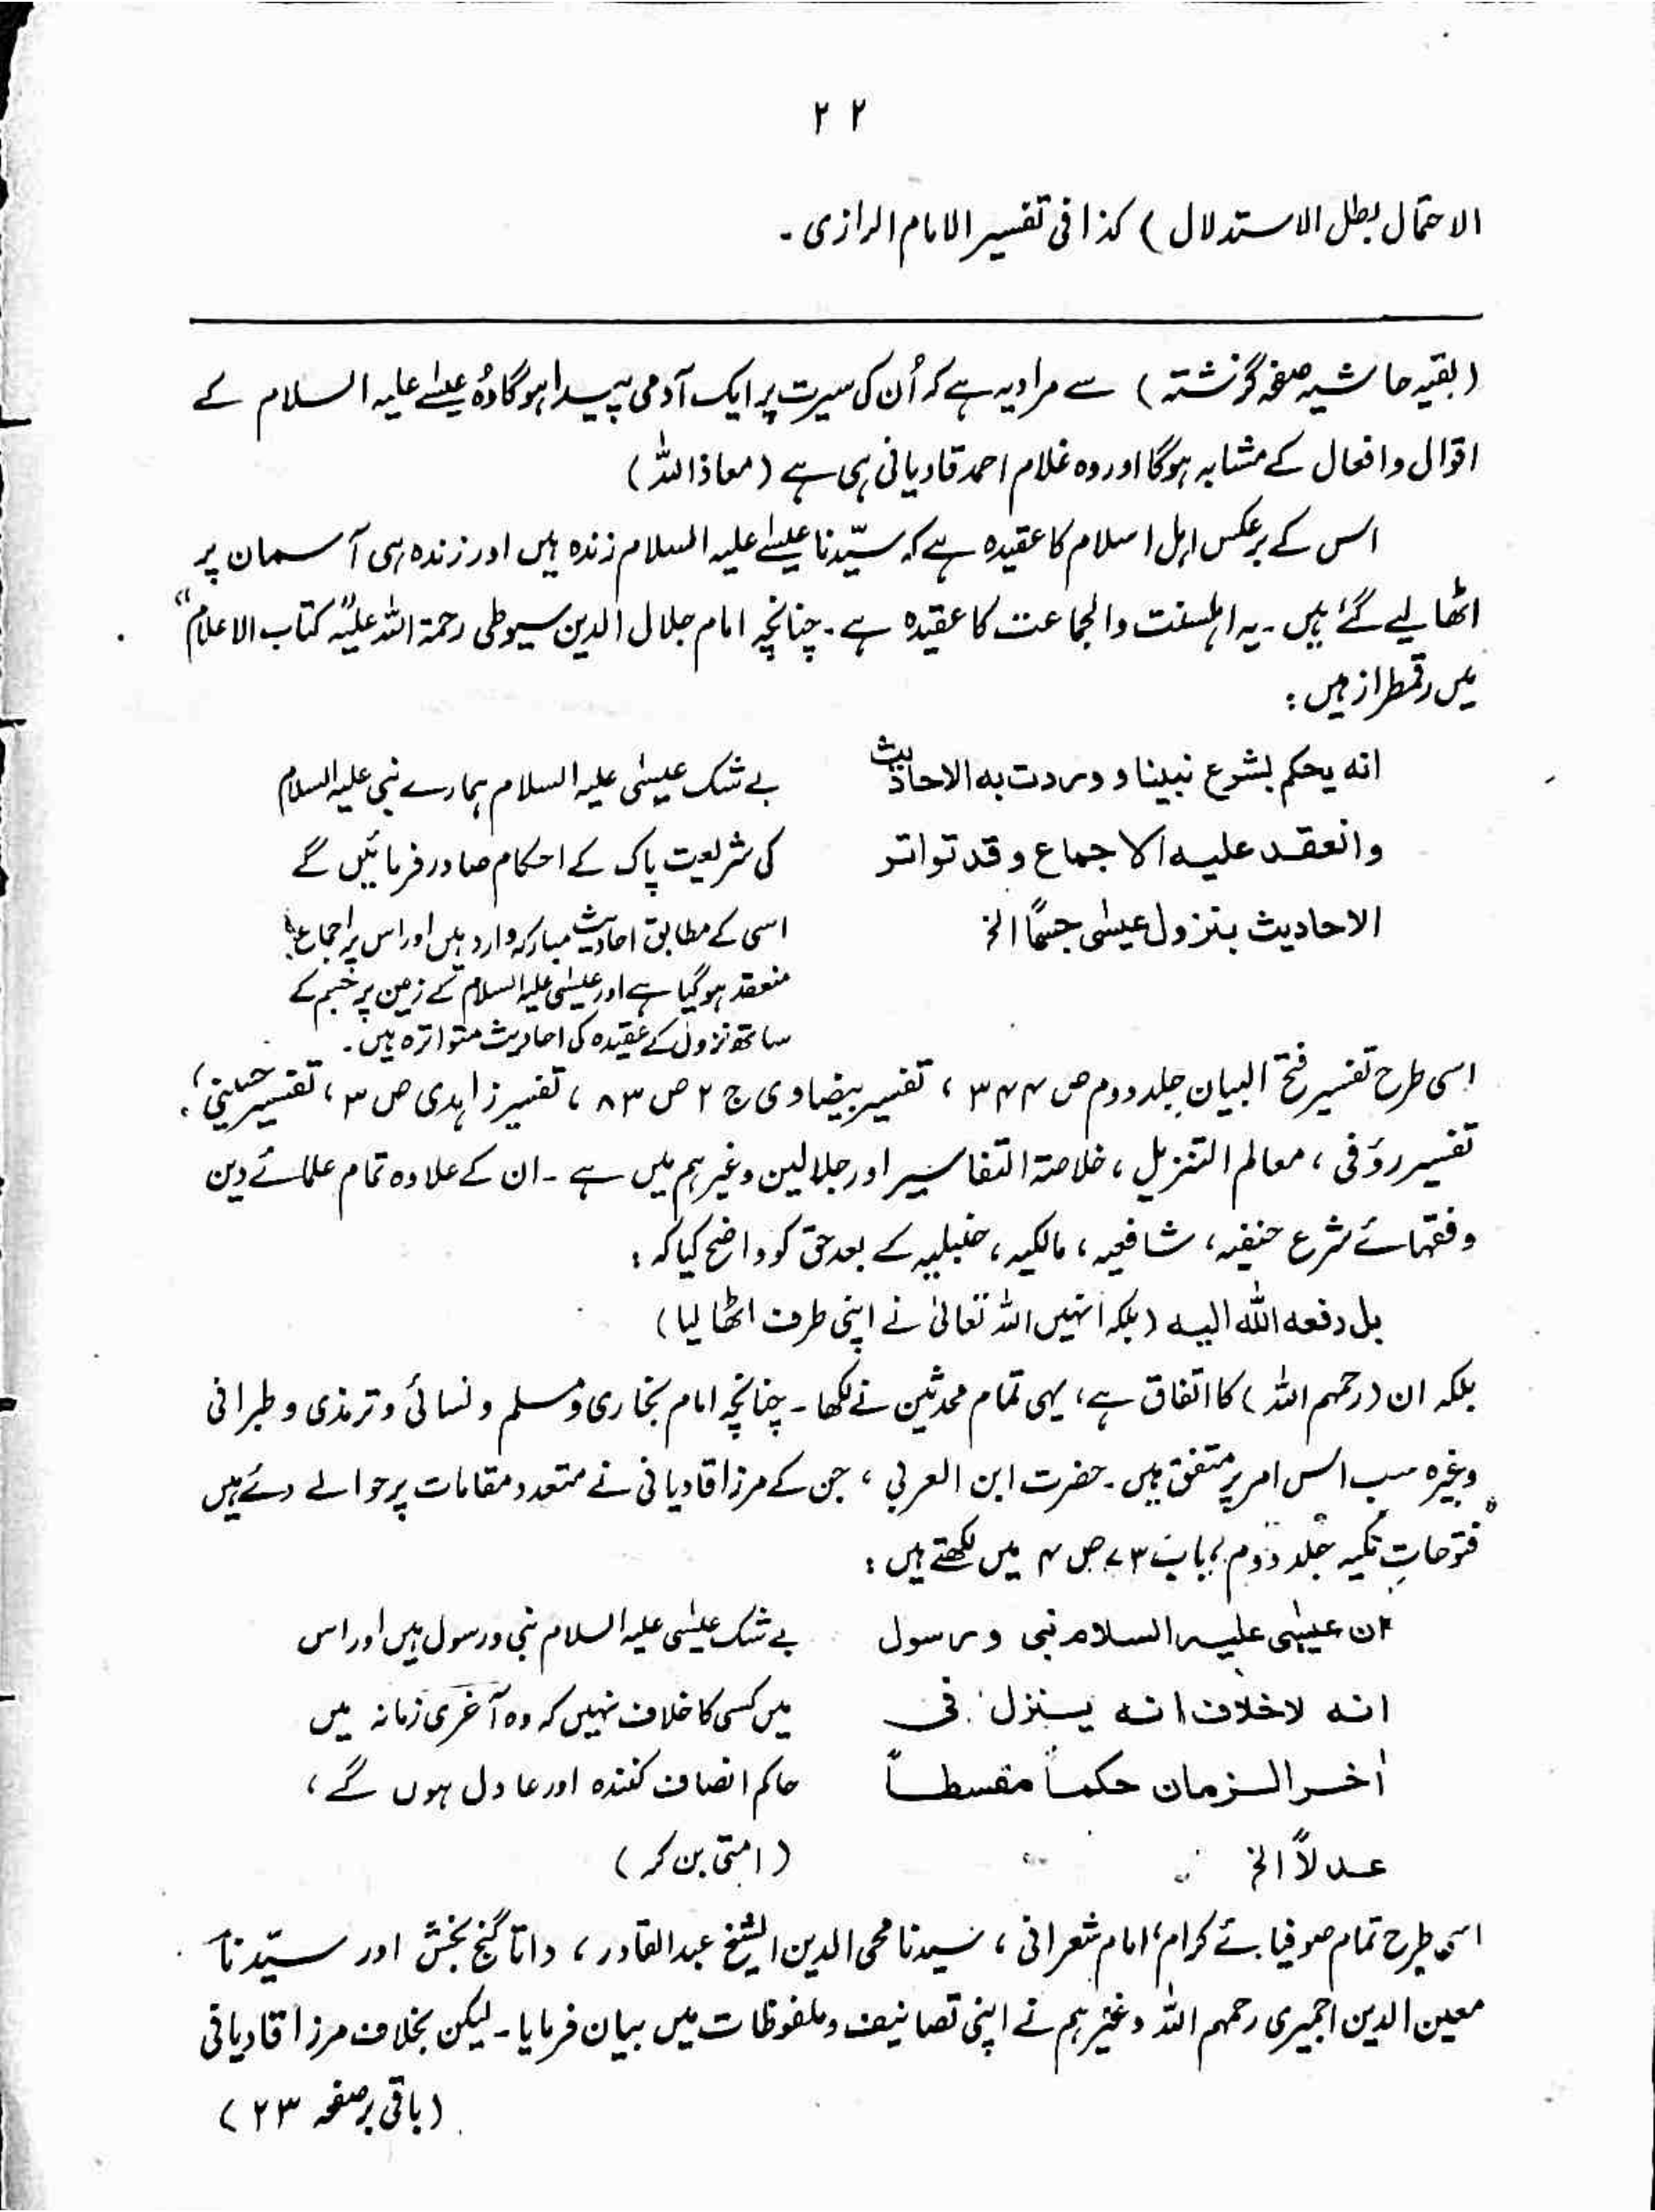 ۲۲
الاحتمال بطل الاستدلال) کذا فی تفسیر الامام الرازی۔
(بقیہ حاشیہ صفحہ گزشتہ) سے مراد یہ ہے کہ اُن کی سیرت پر ایک آدمی پیدا ہوگا وُہ عیسٰے علیہ السلام کے
اقوال و افعال کے مشابہ ہوگا اور وہ غلام احمد قادیانی ہی ہے (معاذ اللہ)
اس کے برعکس اہل اسلام کا عقیدہ ہے کہ سیّدنا عیسٰے علیہ السلام زندہ ہیں اور زندہ ہی آسمان پر
اٹھا لیے گئے ہیں۔ یہ اہلسنت والجماعت کا عقیدہ ہے۔ چنانچہ امام جلال الدین سیوطی رحمۃ اللہ علیہ "کتاب الاعلام"
میں رقمطراز ہیں:
انه يحكم بشرع نبينا و وردت به الاحاديث
وانعقد عليه الاجماع وقد تواتر
الاحاديث بنزول عيسٰى جسمًا الخ
بے شک عیسٰی علیہ السلام ہمارے نبی علیہ السلام
کی شریعت پاک کے احکام صادر فرمائیں گے
اسی کے مطابق احادیث مبارکہ وارد ہیں اور اس پر اجماع
منعقد ہوگیا ہے اور عیسٰی علیہ السلام کے زمین پر جسم کے
ساتھ نزول کے عقیدہ کی احادیث متواترہ ہیں۔
اسی طرح تفسیر فتح البیان جلد دوم ص ۳۴۴ ، تفسیر بیضاوی ج ۲ ص ۸۳ ، تفسیر زاہدی ص ۳ ، تفسیر حسینی ،
تفسیر رؤفی ، معالم التنزیل ، خلاصۃ التفاسیر اور جلالین وغیرہم میں ہے ۔ ان کے علاوہ تمام علمائے دین
و فقہائے شرع حنفیہ ، شافعیہ ، مالکیہ ، حنبلیہ کے بعد حق کو واضح کیا کہ :
بل رفعه الله اليه (بلکہ انہیں اللہ تعالیٰ نے اپنی طرف اٹھا لیا)
بلکہ ان (رحمہم اللہ) کا اتفاق ہے ، یہی تمام محدثین نے لکھا ۔ چنانچہ امام بخاری و مسلم و نسائی و ترمذی و طبرانی
وغیرہ سب اس امر پر متفق ہیں ۔ حضرت ابن العربی ، جن کے مرزا قادیانی نے متعدد مقامات پر حوالے دئے ہیں
"فتوحاتِ مکیہ جلد دوم ، باب ۷۳ ص ۴ میں لکھتے ہیں :
ان عيسٰى عليه السلام نبى ورسول
انه لا خلاف انه ينزل فى
اٰخر الزمان حكمًا مقسطًا
عدلًا الخ
بے شک عیسٰی علیہ السلام نبی و رسول ہیں اور اس
میں کسی کا خلاف نہیں کہ وہ آخری زمانہ میں
حاکم انصاف کنندہ اور عادل ہوں گے ،
(امتی بن کر)
اسی طرح تمام صوفیائے کرام ، امام شعرانی ، سیدنا محی الدین الشیخ عبدالقادر ، داتا گنج بخش اور سیّدنا
معین الدین اجمیری رحمہم اللہ وغیرہم نے اپنی تصانیف و ملفوظات میں بیان فرمایا ۔ لیکن بخلاف مرزا قادیانی
(باقی برصفحہ ۲۳)